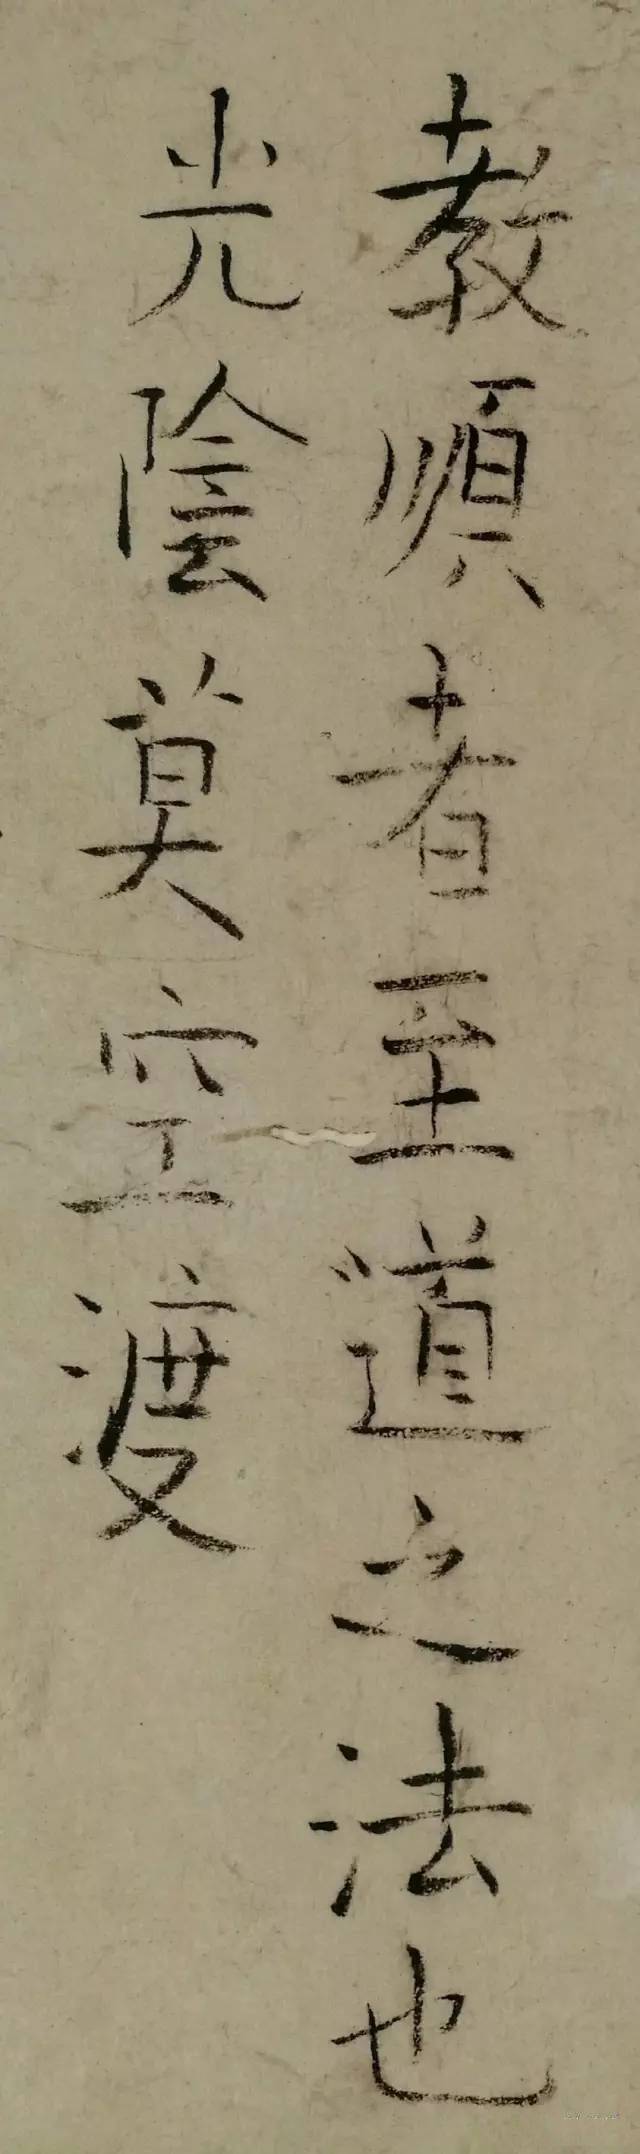 教順者至道之法也
光陰莫空渡